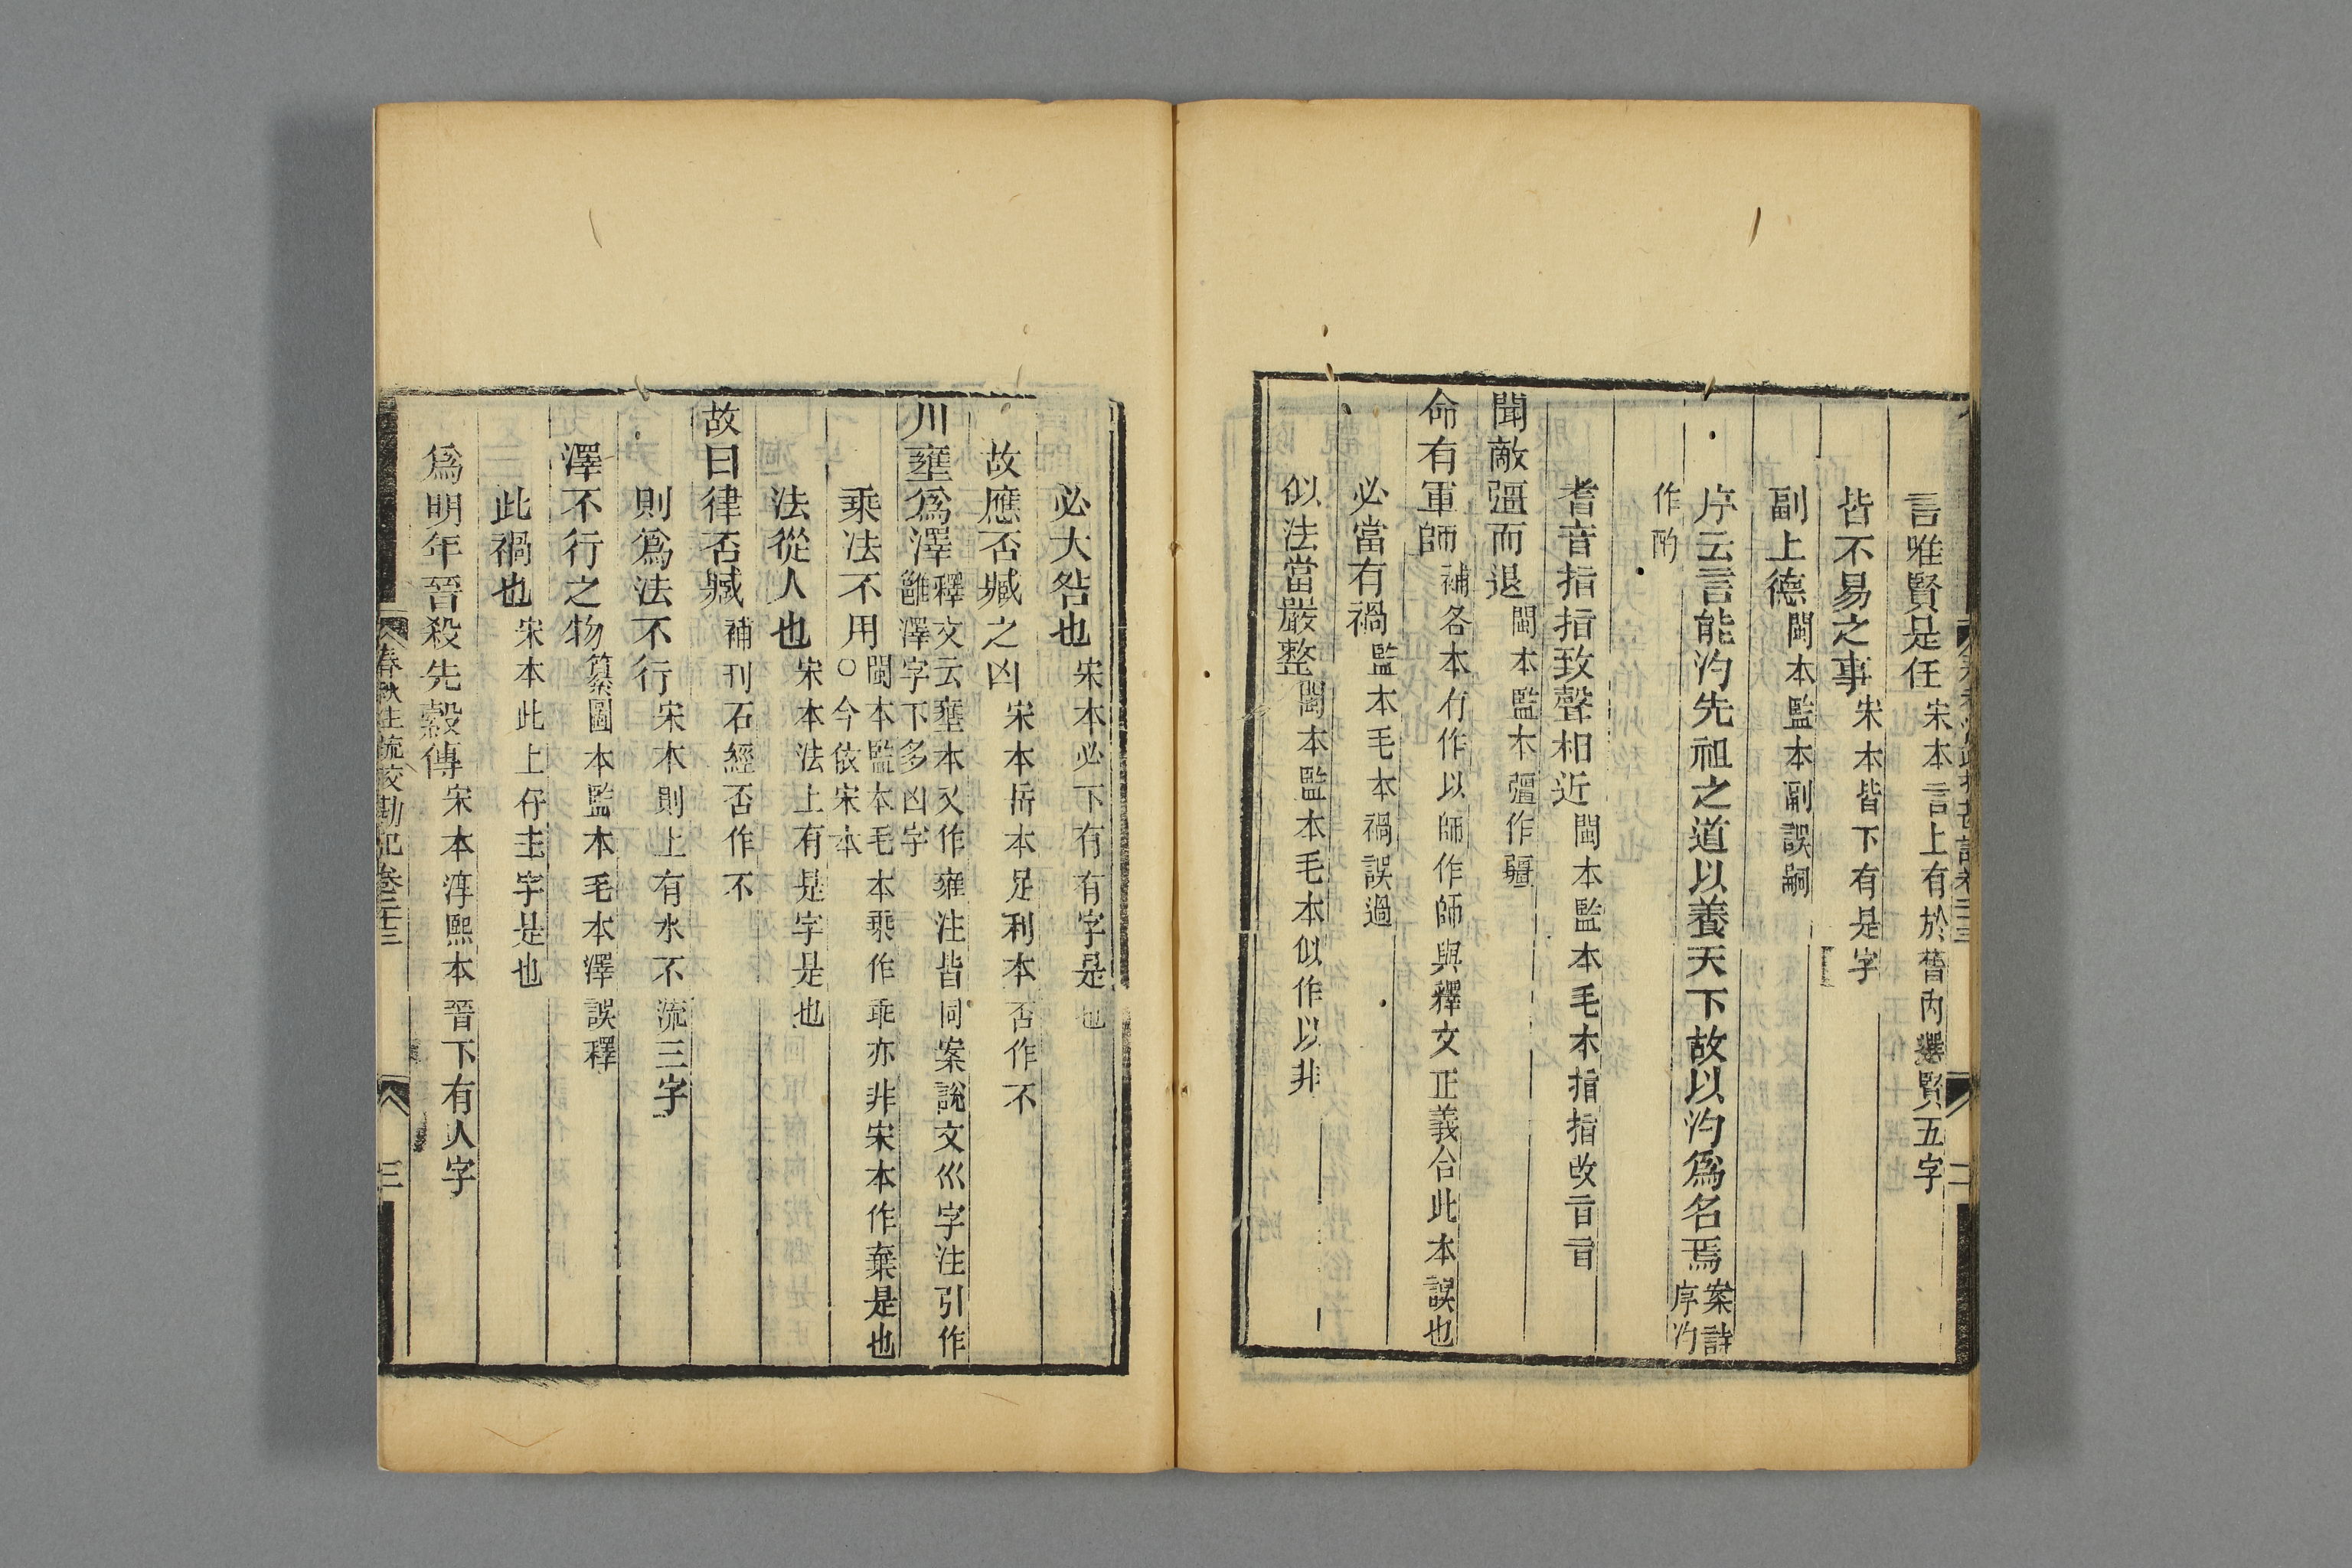 言唯賢是任宋本言上有於舊內選賢五字
皆不易之事宋本皆下有是字
副上德閩本監本副誤嗣
序云言能汋先祖之道以養天下故以汋爲名焉案詩序汋
作酌
耆音指指致聲相近閩本監本毛本指指改旨旨
聞敵彊而退閩本監本彊作疆
命有軍師補各本有作以師作師與釋文正義合此本誤也
必當有禍監本毛本禍誤過
似法當嚴整閩本監本毛本似作以非
必大咎也宋本必下有有字是也
故應否臧之凶宋本岳本足利本否作不
川壅爲澤釋文云壅本又作雍注皆同案說文巛字注引作雝澤字下多凶字
乘法不用閩本監本毛本乘作乖亦非宋本作棄是也○今依宋本
法從人也宋本法上有是字是也
故曰律否臧補刊石經否作不
則爲法不行宋本則上有水不流三字
澤不行之物纂圖本監本毛本澤誤釋
此禍也宋本此上有主字是也
爲明年晉殺先縠傳宋本淳熙本晉下有人字
春秋注疏校勘記卷二十三
三